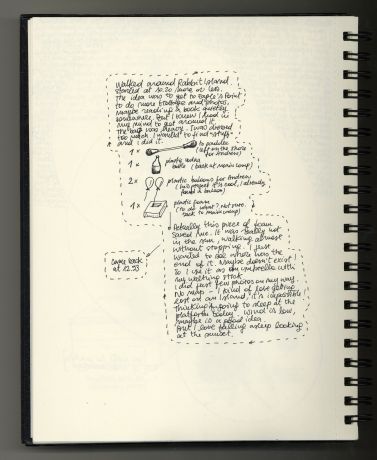 Walked around Rabbit Island.
Started at 10.20 more or less.
The idea was to get to Eagle's Point
to do more
maybe read a book quietly
somewhere. But I knew I had in
my mind to get around it.
too much. I wanted to find stuff
and I did it.
1x to paddle
(left on the shore
for Andrew)
1x plastic
bottle (back at main camp)
2x plastic balloons for Andrew
(his project it's cool, I already
found a balloon)
1x plastic foam
(to do what? Not sure.
back to main camp)
came back
at 12.53
Actually this piece of foam
saved me. It was really hot
in the sun, walking almost
without stopping. I just
wanted to see where was the
end of it. Maybe doesn't exist!
So I use it as an umbrella with
my walking stick
I did just few photos on my way.
No map - I kind of love getting
lost on an Island, it's impossible!
Thinking going to sleep at the
platform today. Wind is low,
maybe is a good idea.
But I love falling asleep looking
at the sunset.